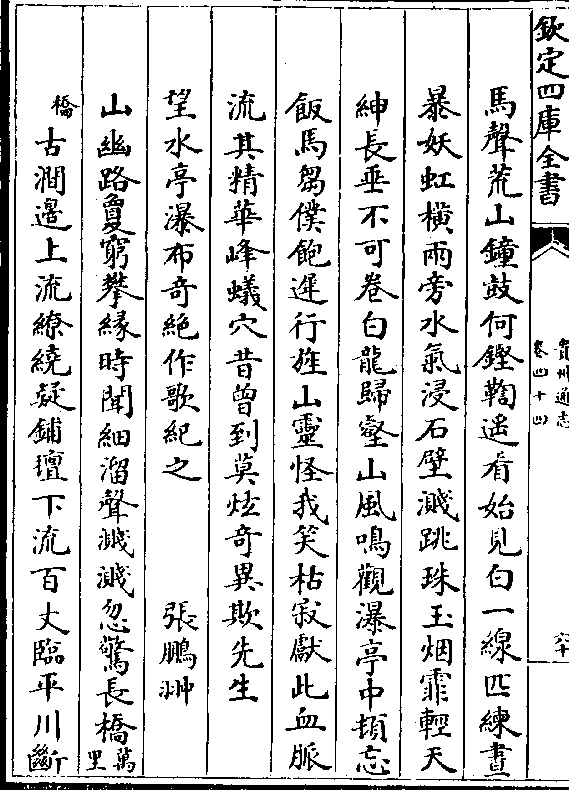 欽定四庫全書
貴州通志
卷四十四
六十
馬聲荒山鐘鼓何鏗鞫遙看始見白一線匹練晝
暴妖虹橫兩旁水氣浸石壁濺跳珠玉烟霏輕天
紳長垂不可卷白龍歸壑山風鳴觀瀑亭中頓忘
飯馬芻僕飽遲行旌山靈怪我笑枯寂獻此血脈
流其精華峰蟻穴昔曾到莫炫奇異欺先生
望水亭瀑布奇絶作歌紀之 張鵬翀
山幽路敻窮攀緣時聞細溜聲濺濺忽驚長橋萬里
橋古澗邊上流繚繞凝鋪壇下流百丈臨平川斷